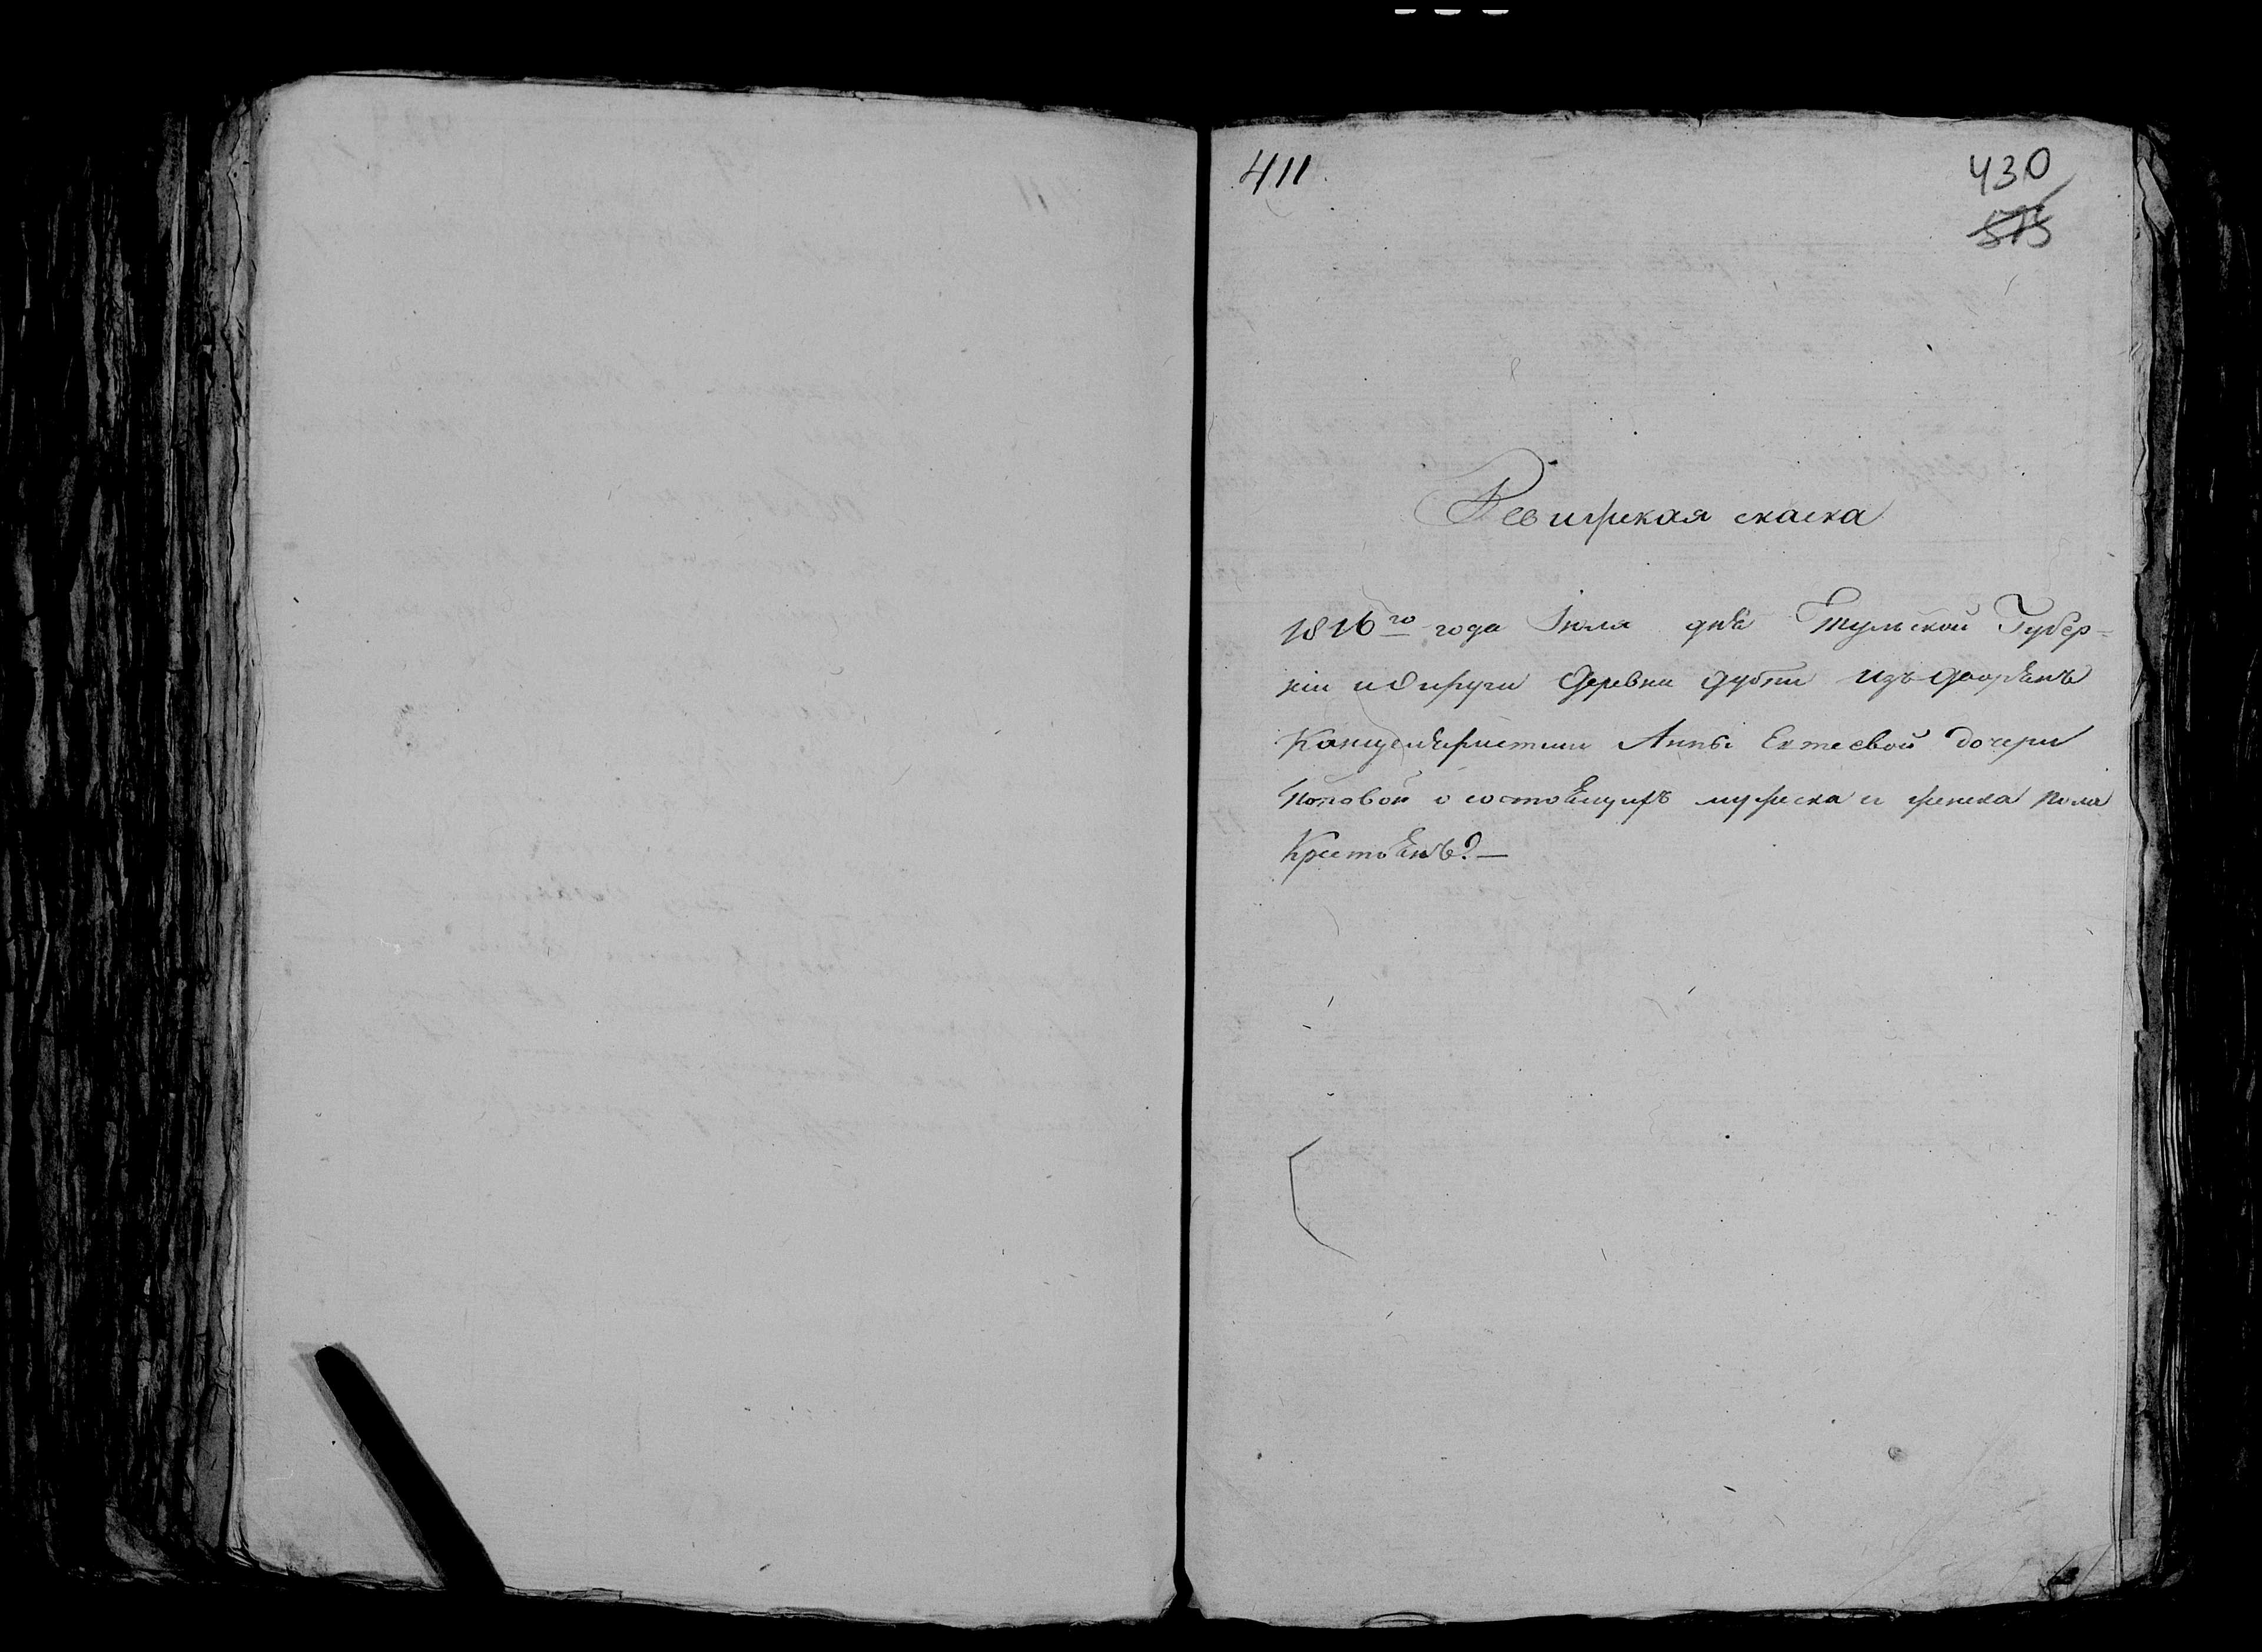 411.
430
575
Ревижская скаска
1816го года Июля дня Тульской Губер=
ніи и Округи деревни дубни изъ дворѣнъ
Канцелѣристши Анны Ектеевой дочери
Поповой о состоѣщихъ мужеска и женска пола
Крестьѣнъ?—